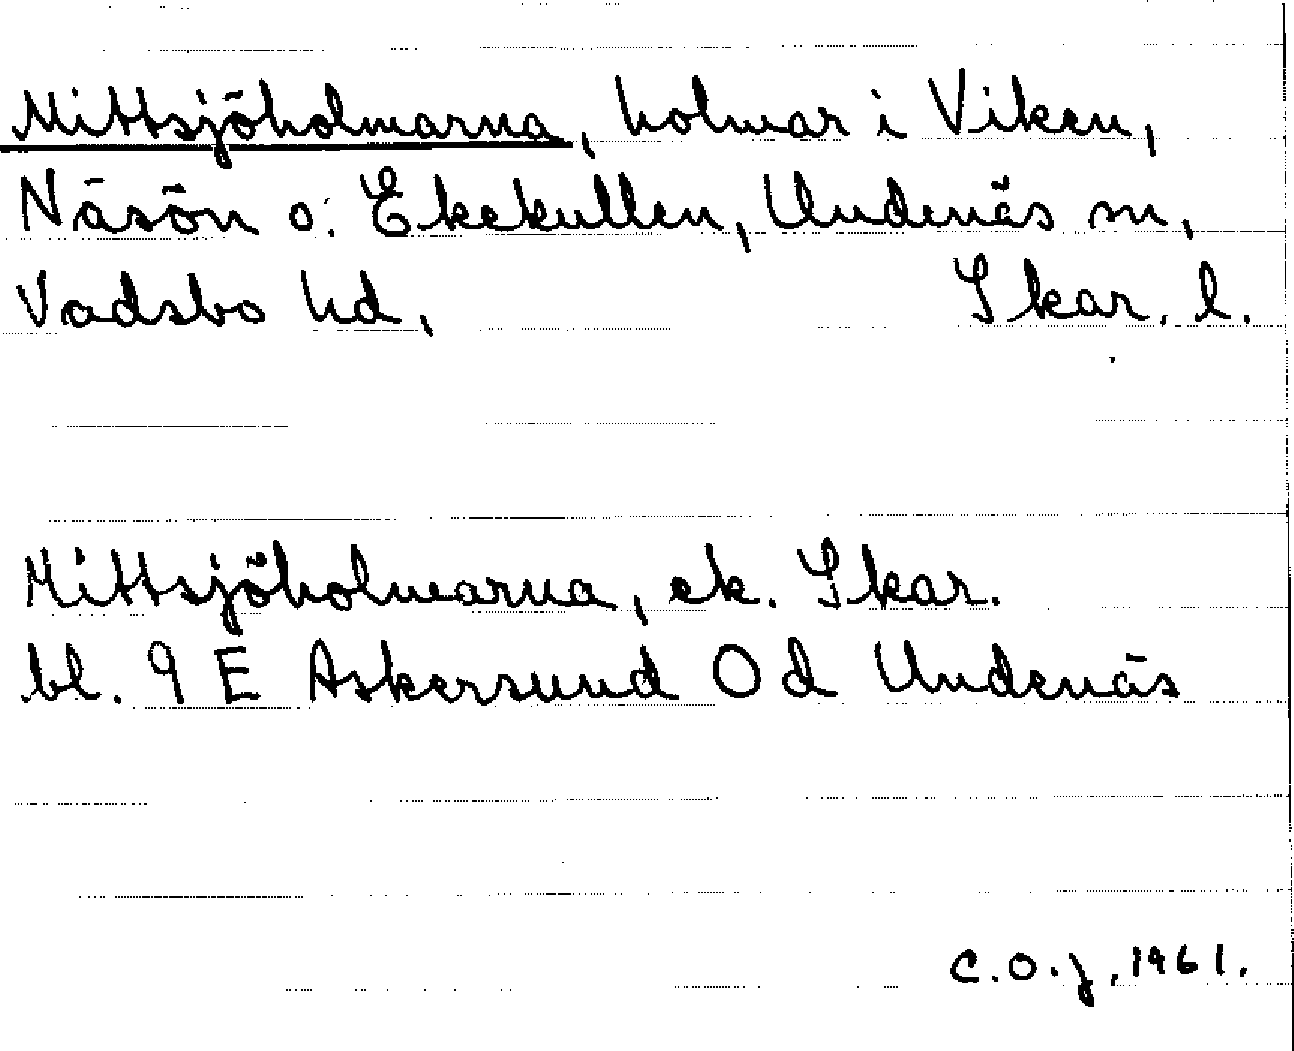 Mittsjöholmarna, holmar i Viken,
Näsön o. Ekekullen, Undenäs sn,
Vadsbo hd, Skar. l.
Mittsjöholmarna, ek. Skar.
bl. 9 E Askersund Od Undenäs
C.O.J, 1961.